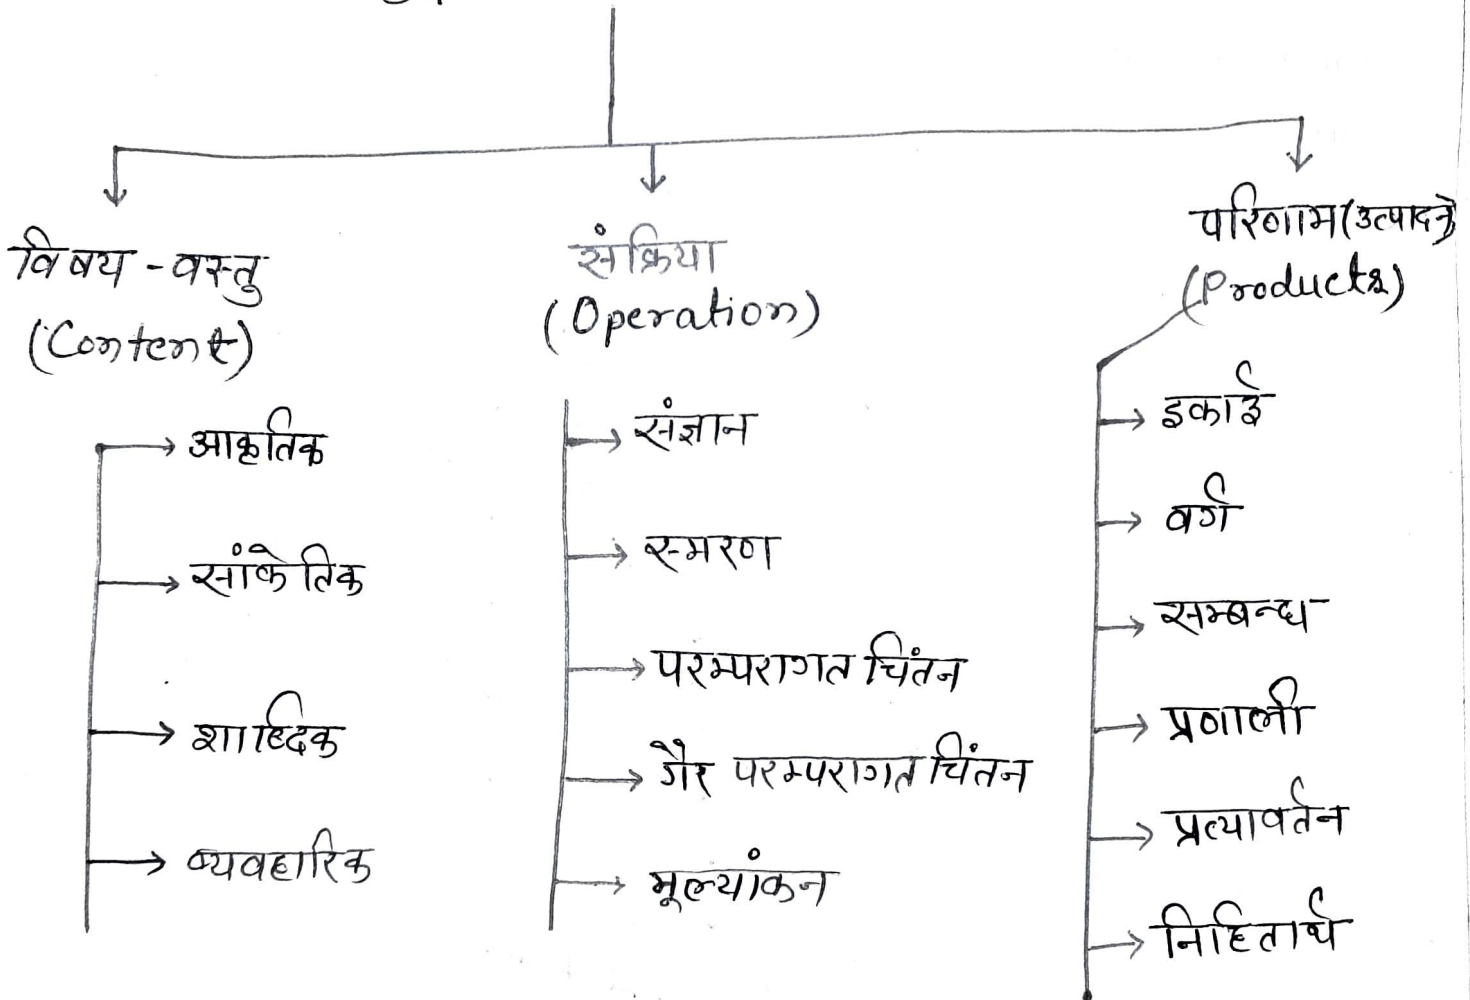 विषय-वस्तु
(Content)
आकृतिक
सांकेतिक
शाब्दिक
व्यवहारिक
संक्रिया
(Operation)
संज्ञान
स्मरण
परम्परागत चिंतन
गैर परम्परागत चिंतन
मूल्यांकन
परिणाम (उत्पादन)
(Products)
इकाई
वर्ग
सम्बन्ध
प्रणाली
प्रत्यावर्तन
निहितार्थ